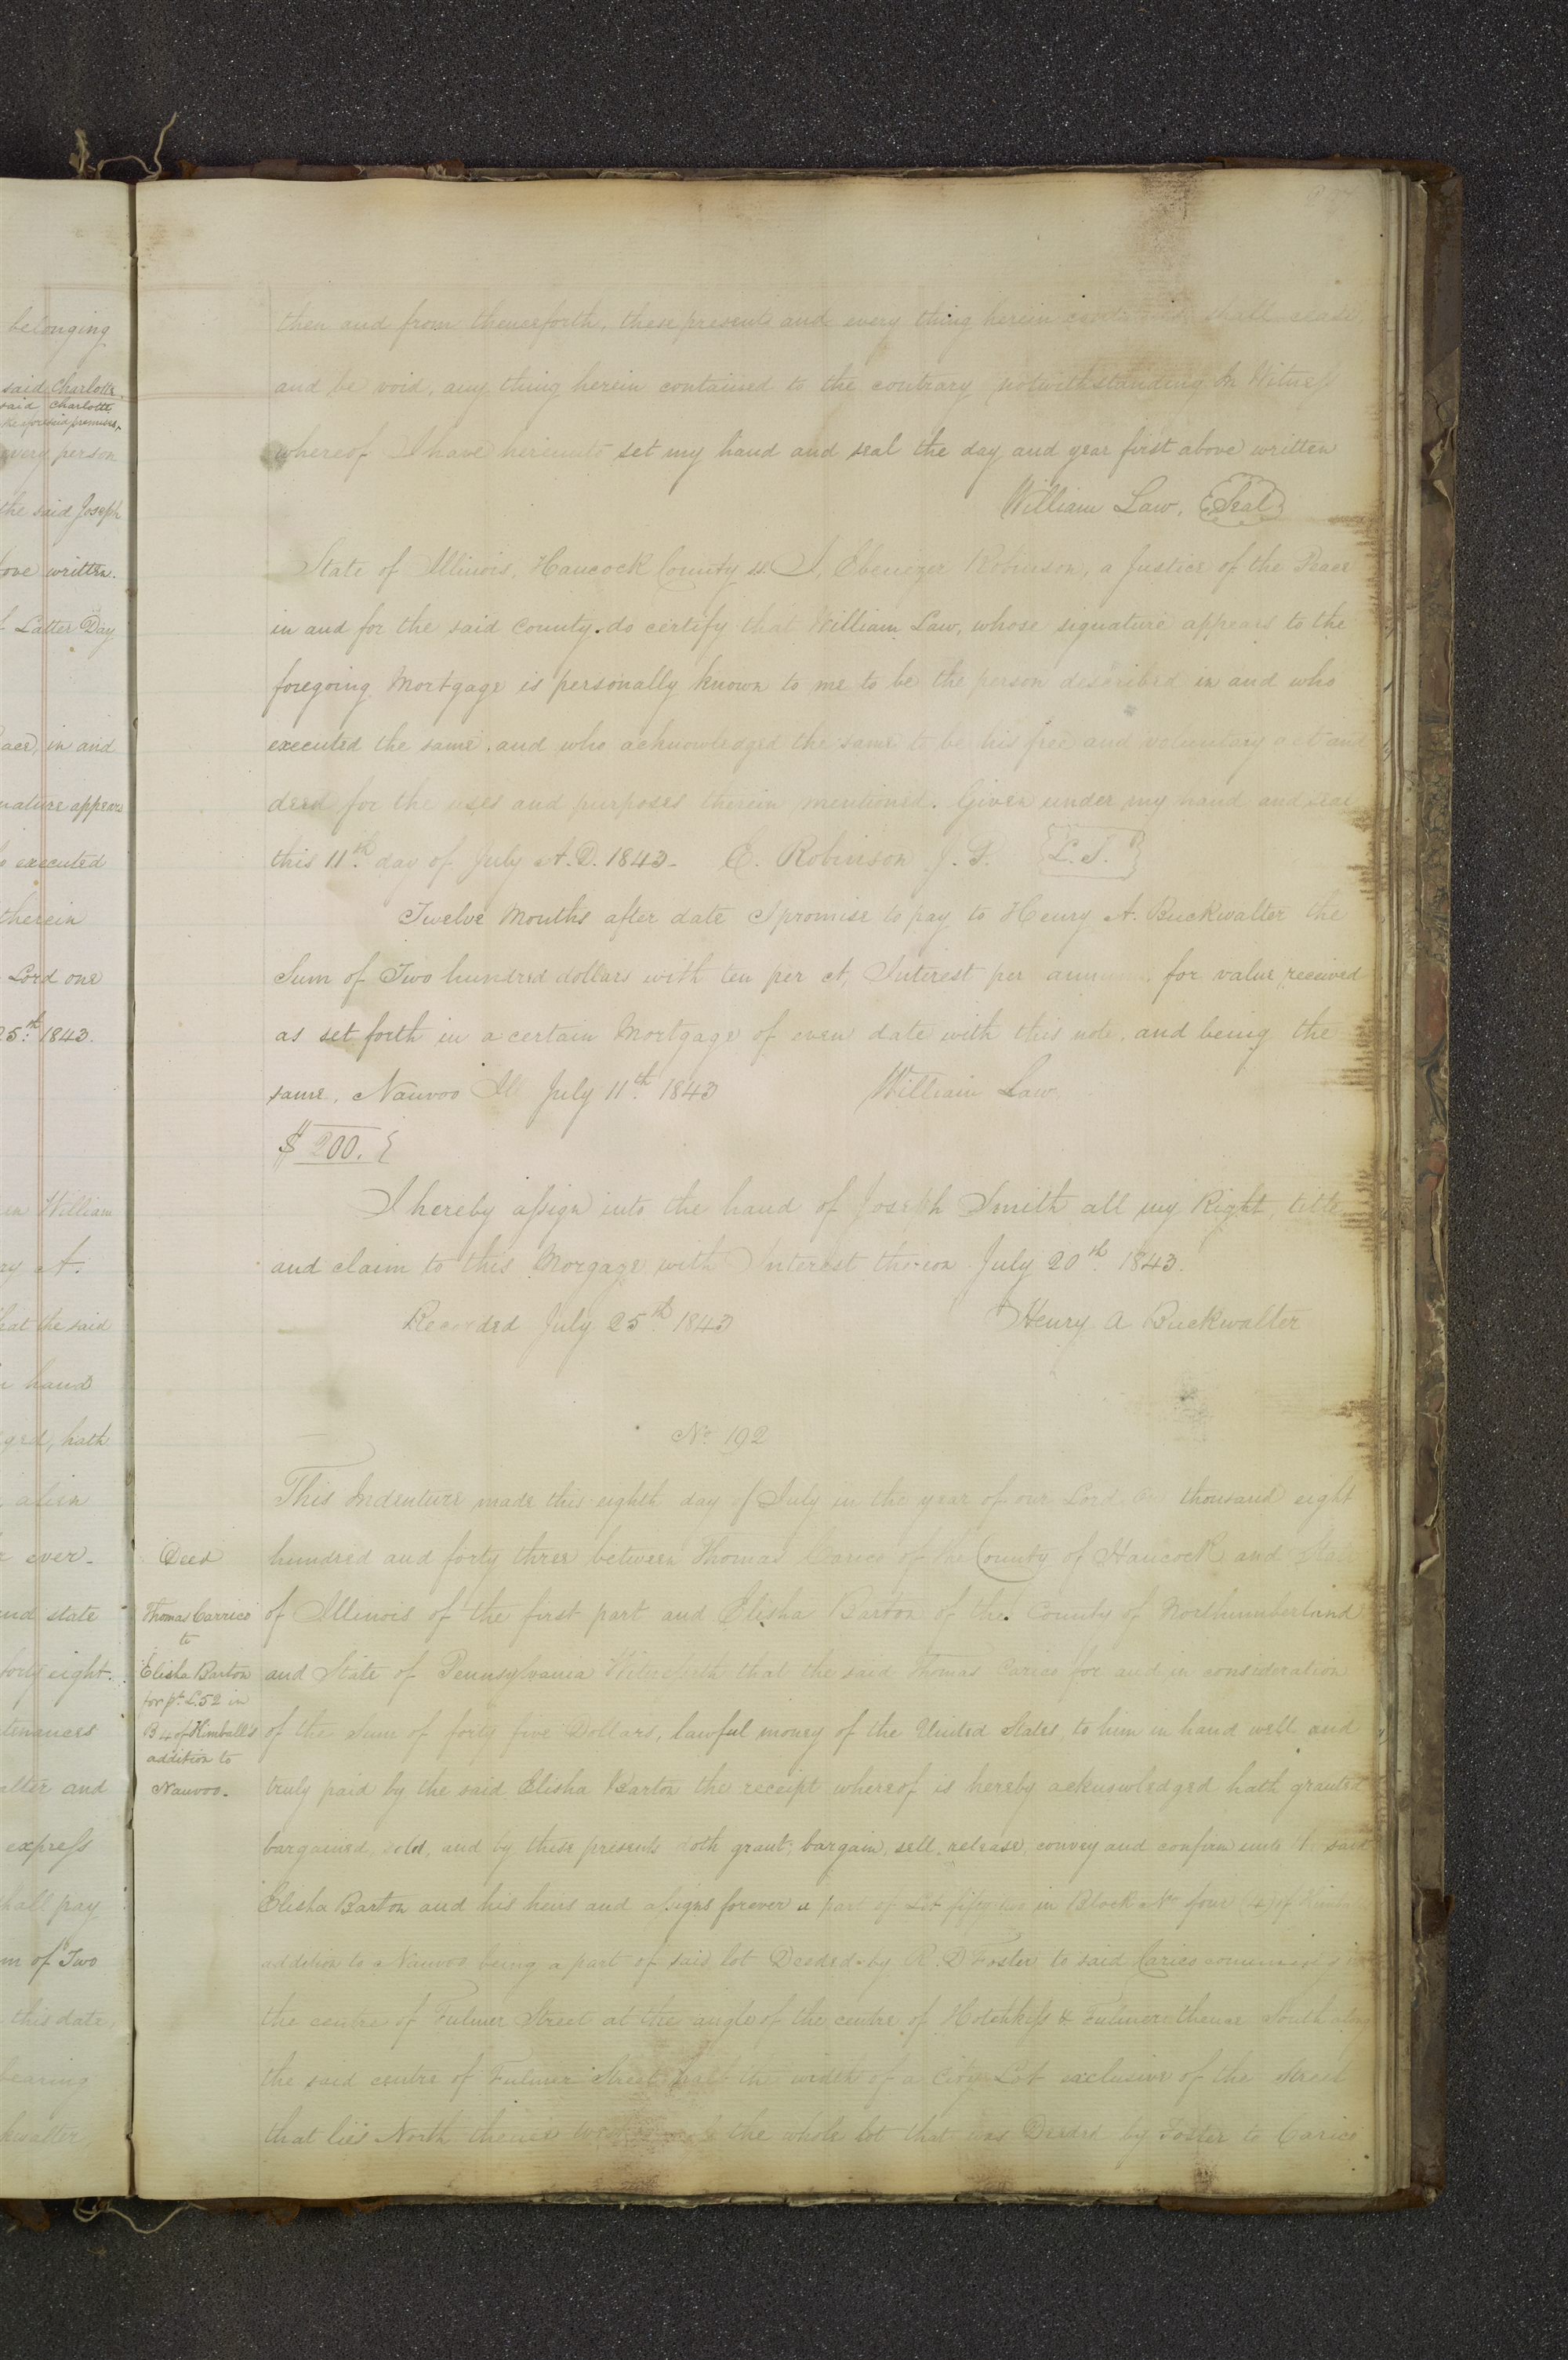 belonging
said Charlotte.
said Charlotte,
the aforesaid premises,
every person
the said Joseph
above written.
Latter Day
in and
appears
executed
therein
Lord one
25th. 1843.
William
A.
that the said
hand
hath
alien
ever-
and state
forty eight.
and
express
shall pay
of Two
this date,
bearing
then and from thenceforth, these presents and every thing herein shall cease
and be void, any thing herein contained to the contrary notwithstanding In Witness
whereof I have hereunto set my hand and seal the day and year first above written
William Law, Seal
State of Illinois, Hancock County ss. I, Ebenezer Robinson, a Justice of the Peace
in and for the said County. do certify that William Law, whose signature appears to the
foregoing Mortgage is personally known to me to be the person described in and who
executed the same, and who acknowledged the same to be his free and voluntary act and
deed for the uses and purposes therein mentioned. Given under my hand and seal
this 11th. day of July A.D. 1843- E. Robinson J. P. L.S.
Twelve Months after date I promise to pay to Henry A. Buckwalter the
Sum of Two hundred dollars with ten per ct, Interest per annum, for value received
as set forth in a certain Mortgage of even date with this note, and being the
same, Nauvoo Ill July 11th. 1843 William Law,
$ 200. {
I hereby assign into the hand of Joseph Smith all my Right, title
and claim to this Morgage with Interest thereon July 20th. 1843.
Recorded July 25th. 1843 Henry A Buckwalter
No 192
This Indenture made this eighth day of July in the year of our Lord one thousand eight
Deed
hundred and forty three between Thomas Carico of the County of Hancock and State
Thomas Carrico
to
Elisha Barton
for pt. L. 52 in
B 4 of Kimball's
addition to
Nauvoo.
of Illinois of the first part and Elisha Barton of the County of Northumberland
and State of Pennsylvania Witnesseth that the said Thomas Carico for and in consideration
of the Sum of forty five Dollars, lawful money of the United States, to him in hand well and
truly paid by the said Elisha Barton the receipt whereof is hereby acknowledged hath granted
bargained, sold, and by these presents doth grant, bargain, sell, release, convey and confirm unto the said
Elisha Barton and his heirs and assigns forever a part of Lot fifty two in Block No four (4) of
addition to Nauvoo being a part of said lot Deeded by R. D Foster to said Carico
the centre of Fulmer Street at the angle of the centre of Hotchkiss & Fulmer thence South along
the said centre of Fulmer Street half the width of a City Lot exclusive of the Street
that lies North thence the whole lot that was Deeded by Foster to Carico